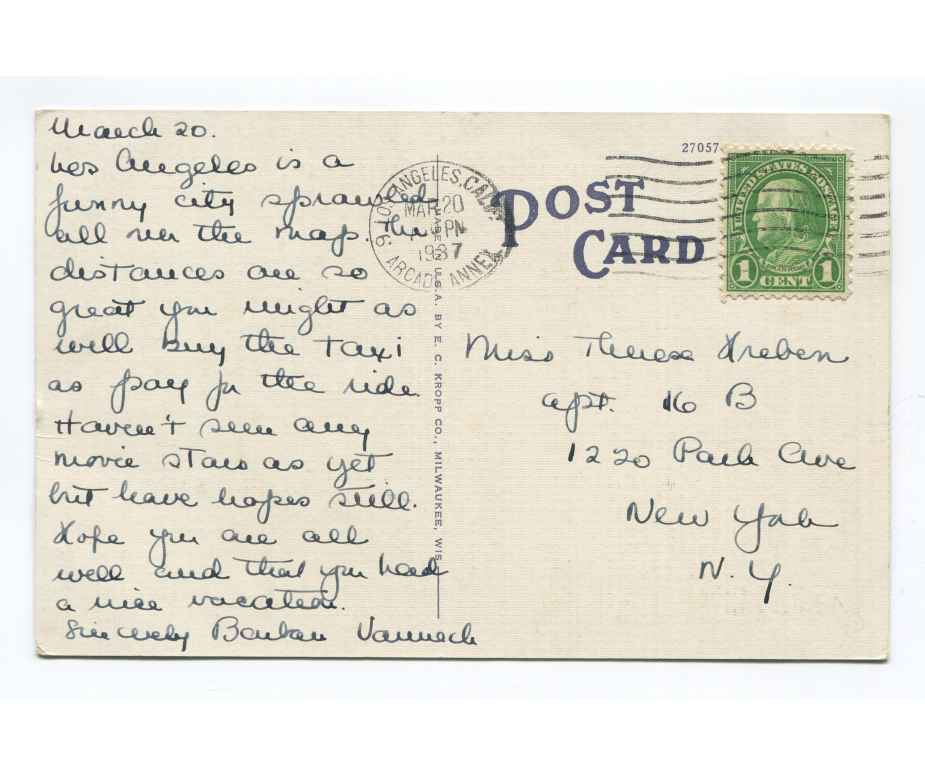 March 20.
Los Angeles is a
funny city sprawled
all over the map. The
distances are so
great you might as
well buy the taxi
as pay for the ride.
Haven't seen any
movie stars as yet
but have hopes still.
Hope you are all
well and that you had
a nice vacation.
Sincerely Barbara
MADE IN U.S.A. BY E. C. KROPP CO., MILWAUKEE, WIS.
LOS ANGELES, CALIF.
MAR 20
PM
1937
ARCADE ANNEX
27057
POST
CARD
UNITED STATES POSTAGE
FRANKLIN
1 CENT 1
Miss Therese
apt. 16 B
1220 Park Ave
New York
N.Y.